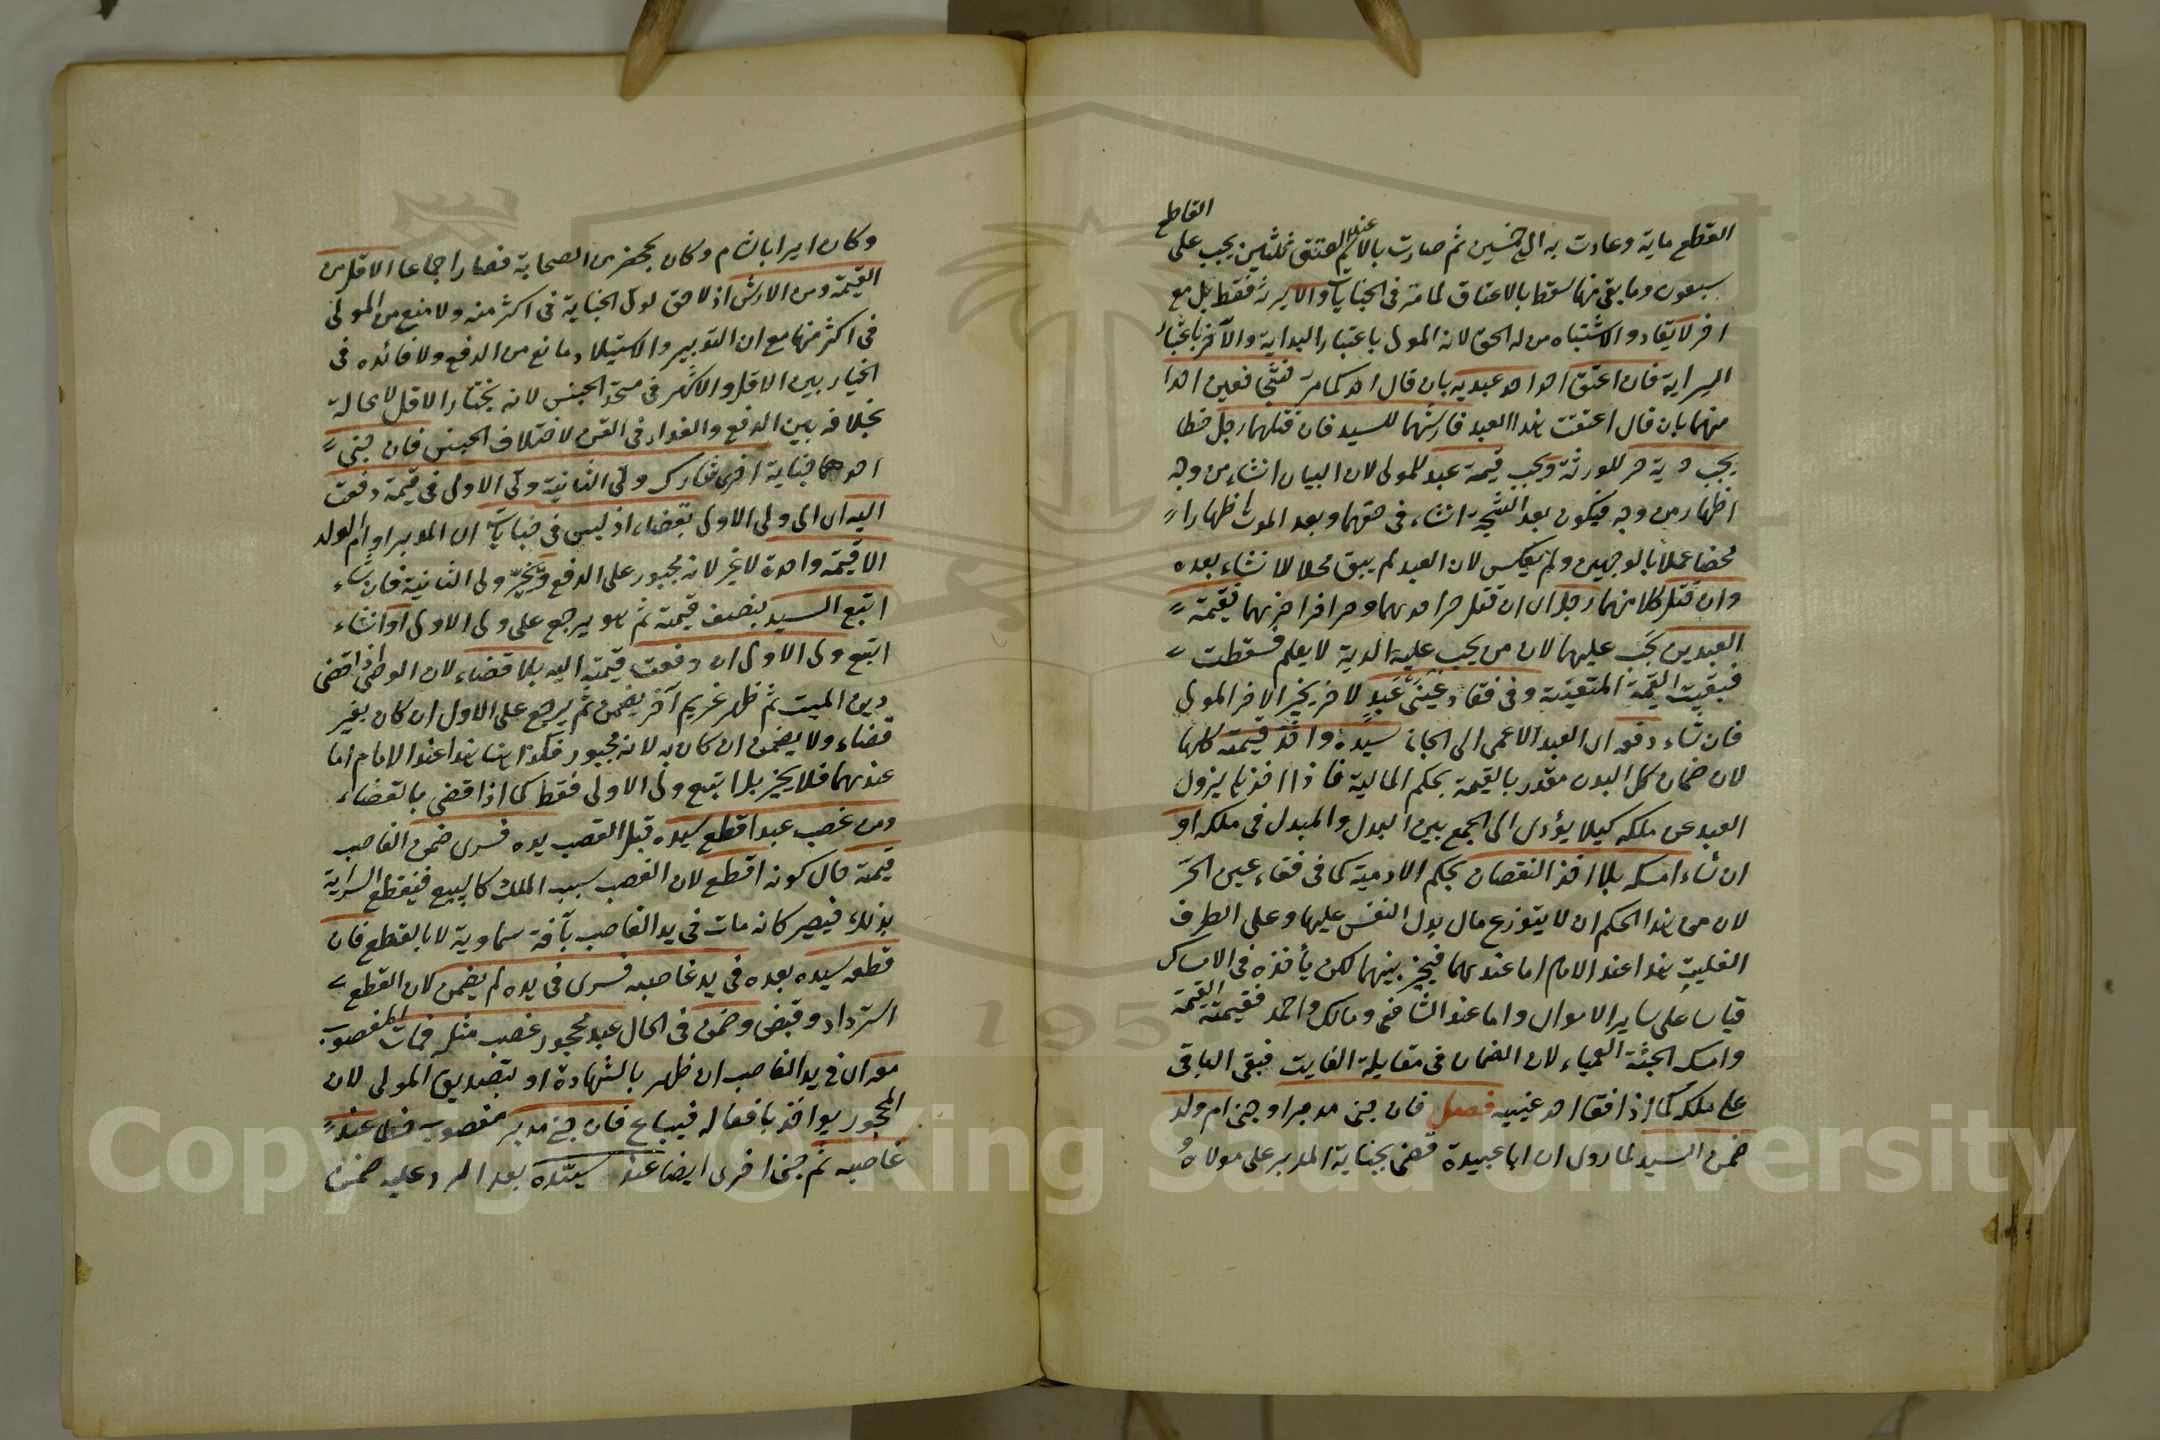 القاطع
القطع ماية وعادت به الى خمسين ثم صارت بالا كلم العتق ثلثين يجب على
سبعون وما بقى منها سقط بالاعتاق لما مر فى الجنايات والا يرثه فقط بل مع
اخر لا يقاد والاشتباه من له الحق لانه المولى باعتبار البداية والآخر باعتبار
السراية فان اعتق احد احد عبديه بان قال احدكما حر فشجا فعين احدا
منهما بان قال اعتقت هذا العبد فارشهما للسيد فان قتلهما رجل خطا
يجب دية حر للورثة ويجب قيمة عبد للمولى لان البيان انشاء من وجه
اظهار من وجه فيكون بعد الشجة انشاء فى حقهما وبعد الموت اظهارا
محضا عملا بالوجهين ولم يعكس لان العبد لم يبق محلا للانشاء بعده
وان قتل كلا منهما رجل اى ان قتل حر احدهما وحر اخر اخرهما فقيمة
العبدين يجب عليهما لان من يجب عليه الدية لا يعلم فسقطت
فبقيت القيمة المتعينة وفى فقاء عينى عبد لاخر يخير الاخر المولى
فان شاء دفعه اى العبد الاعمى الى الجانى سيده واخذ قيمته كلها
لان ضمان كل البدن مقدر بالقيمة بحكم المالية فاذا اخذها يزول
العبد عن ملكه كيلا يؤدى الى الجمع بين البدل والمبدل فى ملكه او
ان شاء امسكه بلا اخذ النقصان بحكم الادمية كما فى فقاء عين الحر
لان من هذا الحكم ان لا يتوزع مال بدل النفس عليها وعلى الطرف
الفايت هذا عند الامام اما عندهما فيخير بينهما لكن يأخذه فى الامساك
قياسا على ساير الاموال واما عند الشافعى ومالك واحمد فقيمته القيمة
وامسك الجثة العمياء لان الضمان فى مقابلة الفايت فبقى الباقى
على ملكه كما اذا فقا احد عينيه فصل فان جنى مدبر او جنى ام ولد
ضمن السيد لما روى ان ابا عبيدة قضى بجناية المدبر على مولاه
وكان اميرا بالشام وكان بمحضر من الصحابة فصار اجماعا الاقل من
القيمة ومن الارش اذ لا حق لولى الجناية فى اكثر منه ولا منع من المولى
فى اكثر منها مع ان التدبير والاستيلاد مانع من الدفع ولا فائده فى
الخيار بين الاقل والاكثر فى متحد الجنس لانه يختار الاقل لا محالة
بخلافه بين الدفع والفداء فى القن لاختلاف الجنس فان جنى
احدهما جناية اخرى شارك ولى الثانية ولى الاولى فى قيمة دفعت
اليه اى الى ولى الاولى بقضاء اذ ليس فى جنايات اى المدبر او ام الولد
الا قيمة واحدة لا غير لانه مجبور على الدفع ويخير ولى الثانية فان شاء
اتبع السيد بنصف قيمته ثم هو يرجع على ولى الاولى او ان شاء
اتبع ولى الاولى ان دفعت قيمته اليه بلا قضاء لان الوصى اذا قضى
دين الميت ثم ظهر غريم آخر يضمن ثم يرجع على الاول ان كان بغير
قضاء ولا يضمن ان كان به لانه مجبور فكذا هنا هذا عند الامام اما
عندهما فلا يخير بل اتبع ولى الاولى فقط كما اذا قضى بالقضاء
ومن غصب عبدا قطع سيده قبل الغصب يده فسرى ضمن الغاصب
قيمته حال كونه اقطع لان الغصب سبب الملك كالبيع فينقطع السراية
بذلك فيصير كانه مات فى يد الغاصب بآفة سماوية لا بالقطع فان
قطعه سيده بعده فى يد غاصبه فسرى فى يده لم يضمن لان القطع
استرداد وقبض وضمن فى الحال عبد محجور غصب مثله فمات المغصوب
معه اى فى يد الغاصب ان ظهر بالشهادة او بتصديق المولى لان
المحجور يواخذ بافعاله فيباع فان جنى مدبر مغصوب خطا عند
غاصبه ثم جنى اخرى ايضا عند سيده بعد الرد عليه ضمن
Copyright © King Saud University
195